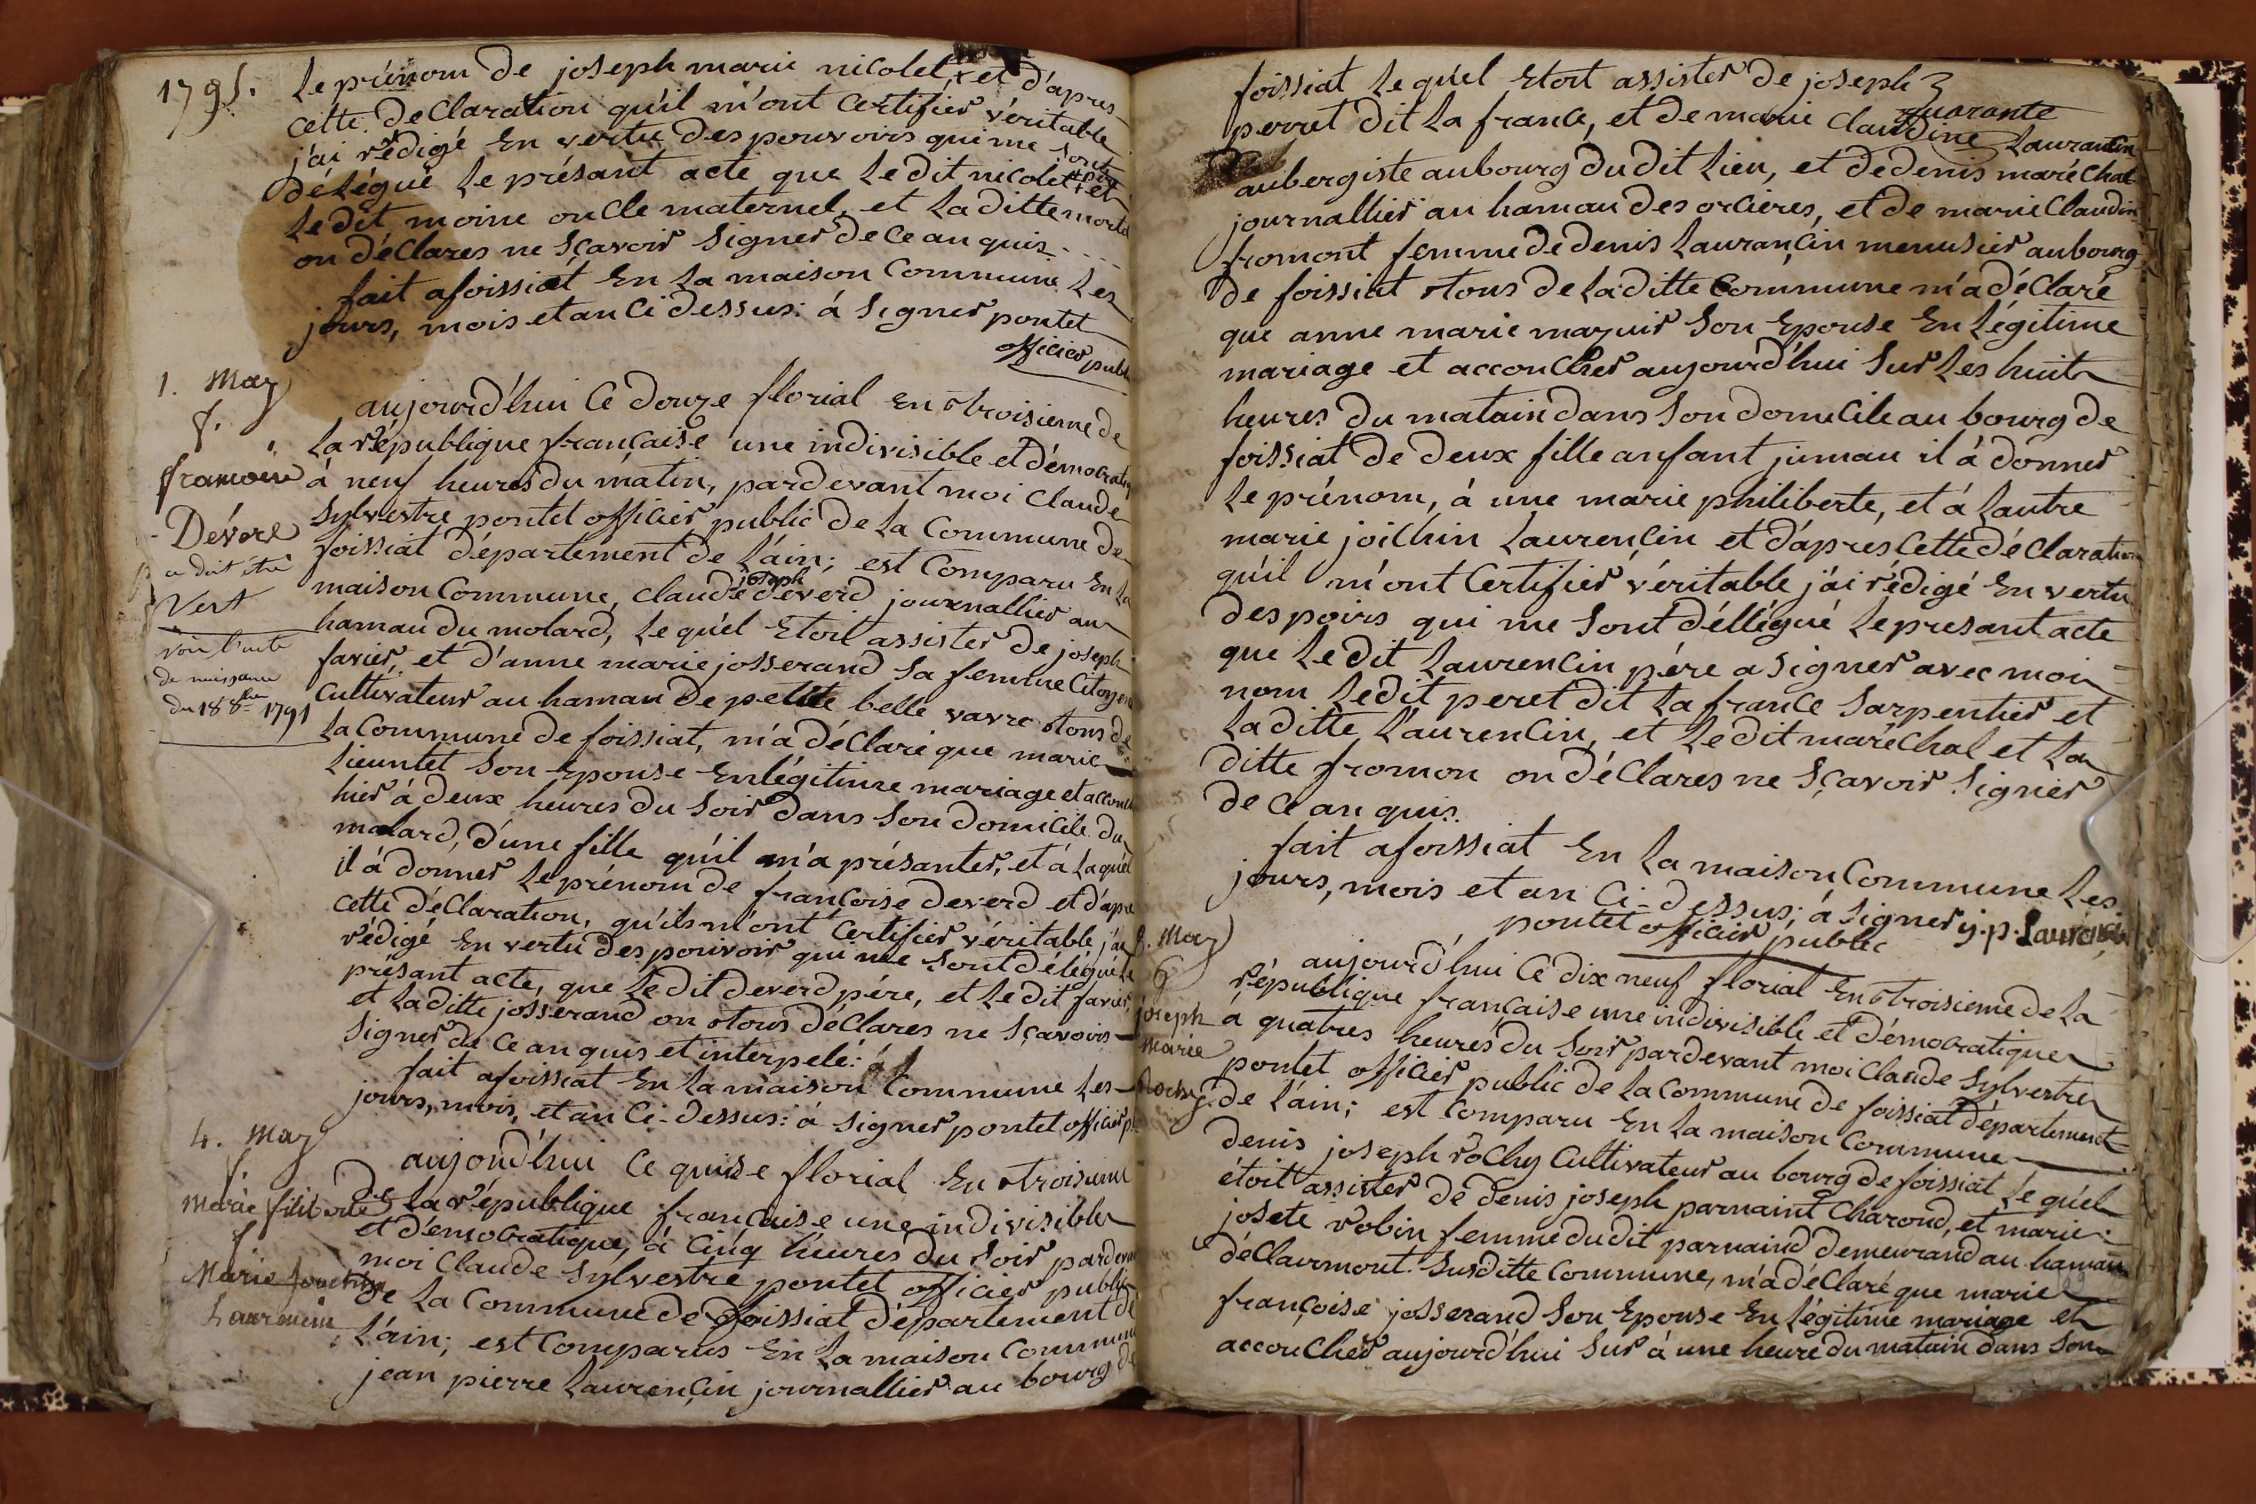 1795.
Le prénom de joseph marie nicolet, + et d'apres
cette declaration qu'il m'ont certifier véritable
j'ai rédigé En vertu des pouvoirs qui me sont
délégué Le présant acte que Le dit nicolet + et
Le dit moine oncle maternel, et La ditte
on déClares ne sçavoir signer de ce an quis
fait a foissiat En La maison Commune Les
jours, mois et an Ci dessus: à signer pontet
officier publ
1. May
f.
francoise
Déverd
ce doit être
Vert
voir l'acte
de naissance
du 18 8bre 1791
aujourd'hui Ce douze florial en troisieme de
La république française une indivisible et démocratiq
à neuf heures du matin, pardevant moi Claude
Sylvestre pontet officier public de La Commune de
foissiat département de L'ain; est Comparu En La
maison Commune, Claude joseph deverd journallier au
hamau du molard, Le qu'el Etoit assister de joseph
favier, et d'anne marie josserand sa femme Citoyen
Cultivateur au hamau de petite belle vavre tous de
La Commune de foissiat, m'a déClaré que marie
Lieuntet son Epouse En légitime mariage et accouc
hier à deux heures du soir dans son domicile du
molard, d'une fille qu'il m'a présanter, et à La qu'el
il à donner Le prénom de françoise deverd et d'apre
cette déClaration, qu'ils m'ont Certifier véritable j'ai
rédigé En vertu des pouvoir qui me sont délégué Le
présant acte, que Le dit deverd pére, et Le dit favier,
et La ditte josserand on tous déClares ne sçavoirs
signer de ce an quis et interpelé: à
fait a foissiat En La maison Commune Les
jours, mois, et an Ci-dessus: à signer pontet officier p
4. May
f.
Marie filiberte
f
Marie
Laurencin
aujourd'hui Ce quinse florial En troisieme
de La république française une indivisible
et démocratique, à Cinq heures du soir pardevan
moi Claude Sylvestre pontet officier public
de La Commune de foissiat département de
L'ain; est Comparus En La maison Commune
jean pierre Laurençin journallier au bourg de
foissiat Le qu'el Etoit assister de joseph
perret dit La france, et de marie Claudine Laurantin
quarante
aubergiste au bourg du dit Lieu, et de denis maréchal
journallier au hamau des orcières, et de marie Claudin
fromont femme de denis Laurançin menusier au bourg
de foissiat tous de La ditte Commune m'a déClaré
que anne marie mazuir son Epouse En Légitime
mariage et accoucher aujourd'hui sur Les huit
heures du matain dans son domicile au bourg de
foissiat de deux fille anfant jumau il à donner
Le prénom, à une marie philiberte, et à Lautre
marie joichin Laurencin et d'apres Cette déClaration
qu'il m'ont Certifier véritable j'ai rédigé En vertu
des poirs qui me sont délligué Le presant acte
que Le dit Laurencin pére a signer avec moi
nom Le dit peret dit La france sarpentier et
La ditte Laurencin, et Le dit maréchal et La
ditte fromon on déClares ne sçavoir signer
de ce an quis.
fait a foissiat En La maison Commune Les
jours, mois et an Ci-dessus; à signer j. p. Laurencin
pontet officier public
8. May
G
joseph
Marie
Rochy
aujourd'hui Ce dix neuf florial En troisieme de La
république française une indivisible et démocratique
à quatres heures du soir pardevant moi Claude Sylvestre
pontet officier public de La commune de foissiat département
de L'ain; est Comparu En La maison Commune
denis joseph rochy Cultivateur au bourg de foissiat Le qu'el
étoit assister de denis joseph parnaint Charond, et marie
josete robin femme du dit parnaind demeurand au hamau
déClairmont susditte Commune, m'a déClaré que marie
françoise josserand son Epouse En Légitime mariage et
accoucher aujourd'hui sur à une heure du matain dans son